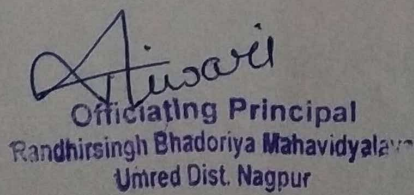 Tiwari
Officiating Principal
Randhirsingh Bhadoriya Mahavidyalaya
Umred Dist. Nagpur